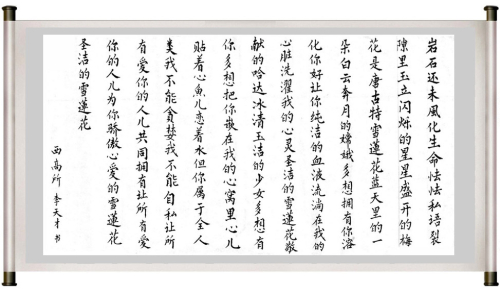 岩石还未风化生命怯怯私语裂
隙里玉立闪烁的星星盛开的梅
花是唐古特雪莲花蓝天里的一
朵白云奔月的嫦娥多想拥有你溶
化你好让你纯洁的血液流淌在我的
心脏洗濯我的心灵圣洁的雪莲花敬
献的哈达冰清玉洁的少女多想有
你多想把你嵌在我的心窝里心儿
贴着心鱼儿恋着水但你属于全人
类我不能贪婪我不能自私让所
有爱你的人儿共同拥有让所有爱
你的人儿为你骄傲心爱的雪莲花
圣洁的雪莲花
西高所 李天才书